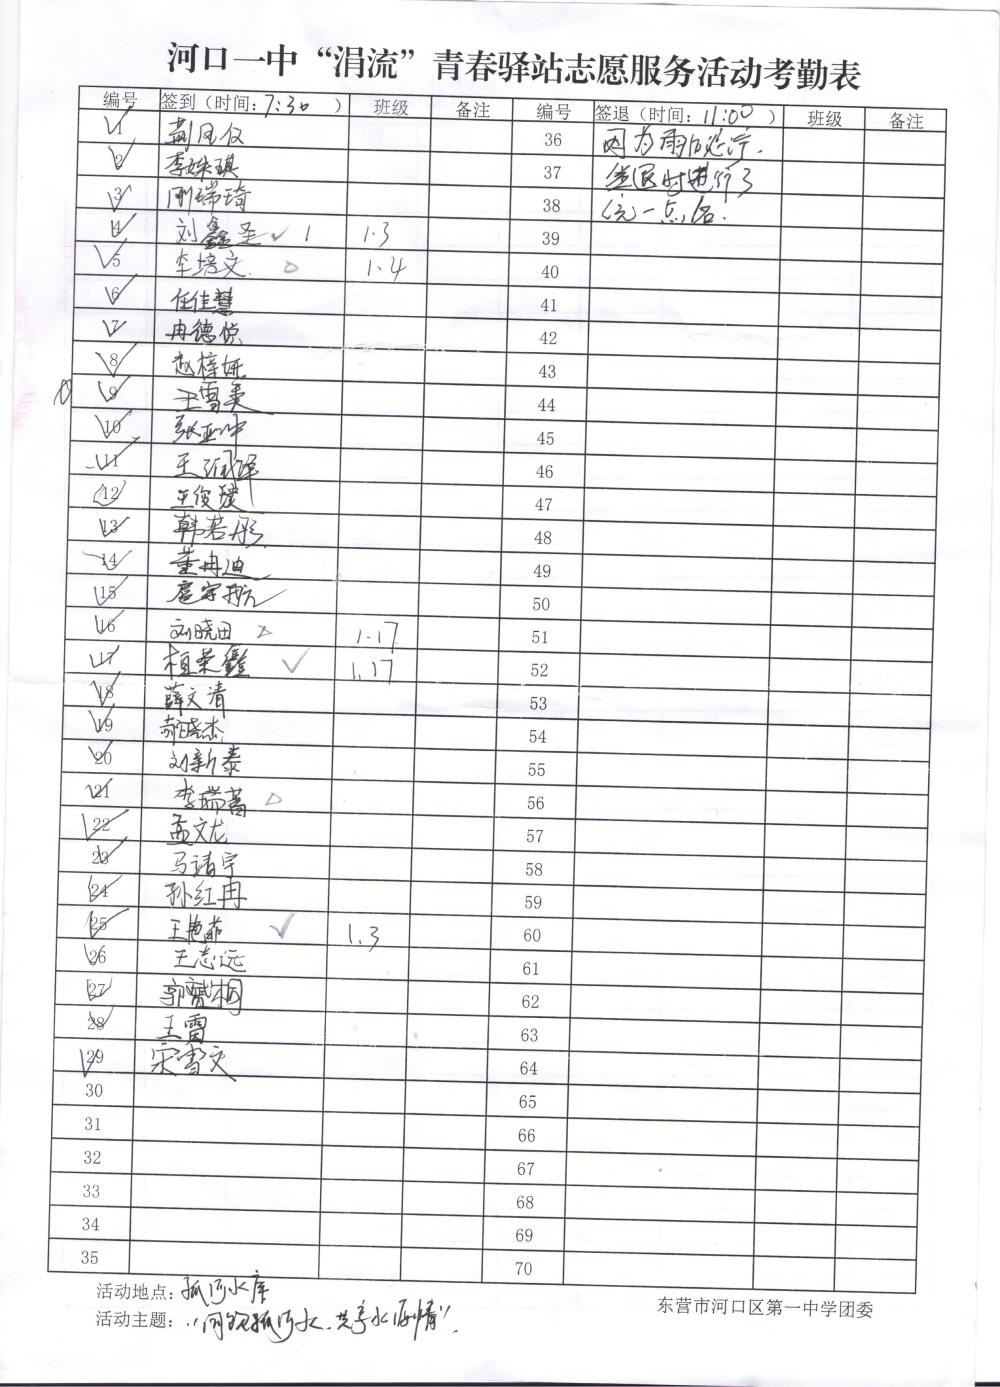 河口一中“涓流”青春驿站志愿服务活动考勤表
编号 签到（时间：7:30 ） 班级 备注 编号 签退（时间：11:00 ） 班级 备注
1 36 因为雨
2 李姝琪 37 签退时进行了
3 刚瑞琦 38 统一点名.
4 刘鑫圣 ✓ 1 1.3 39
5 李培文 △ 1.4 40
6 任佳慧 41
7 冉德悦 42
8 赵梓妍 43
9 王雪美 44
10 张亚冲 45
11 王润泽 46
12 王俊 47
13 韩若彤 48
14 董冉迪 49
15 扈宇航 50
16 刘晓田 △ 1.17 51
17 桓荣鑫 ✓ 1.17 52
18 薛文清 53
19 晓杰 54
20 刘新泰 55
21 李瑞 △ 56
22 孟文龙 57
23 马靖宇 58
24 孙红冉 59
25 王艳茹 ✓ 1.3 60
26 王志远 61
27 郭赞桐 62
28 王雷 63
29 宋雪文 64
30 65
31 66
32 67
33 68
34 69
35 70
活动地点：孤河水库
活动主题：“同饮孤河水.共享水库情”.
东营市河口区第一中学团委